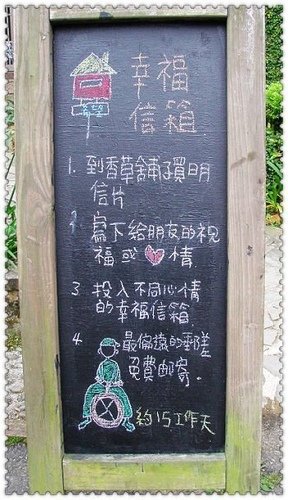 幸福
信箱
1. 到香草舖子買明
信片
2. 寫下給朋友的祝
福或心情
3. 投入不同心情
的幸福信箱
4. 最偏遠的郵差
免費郵寄.
約15工作天